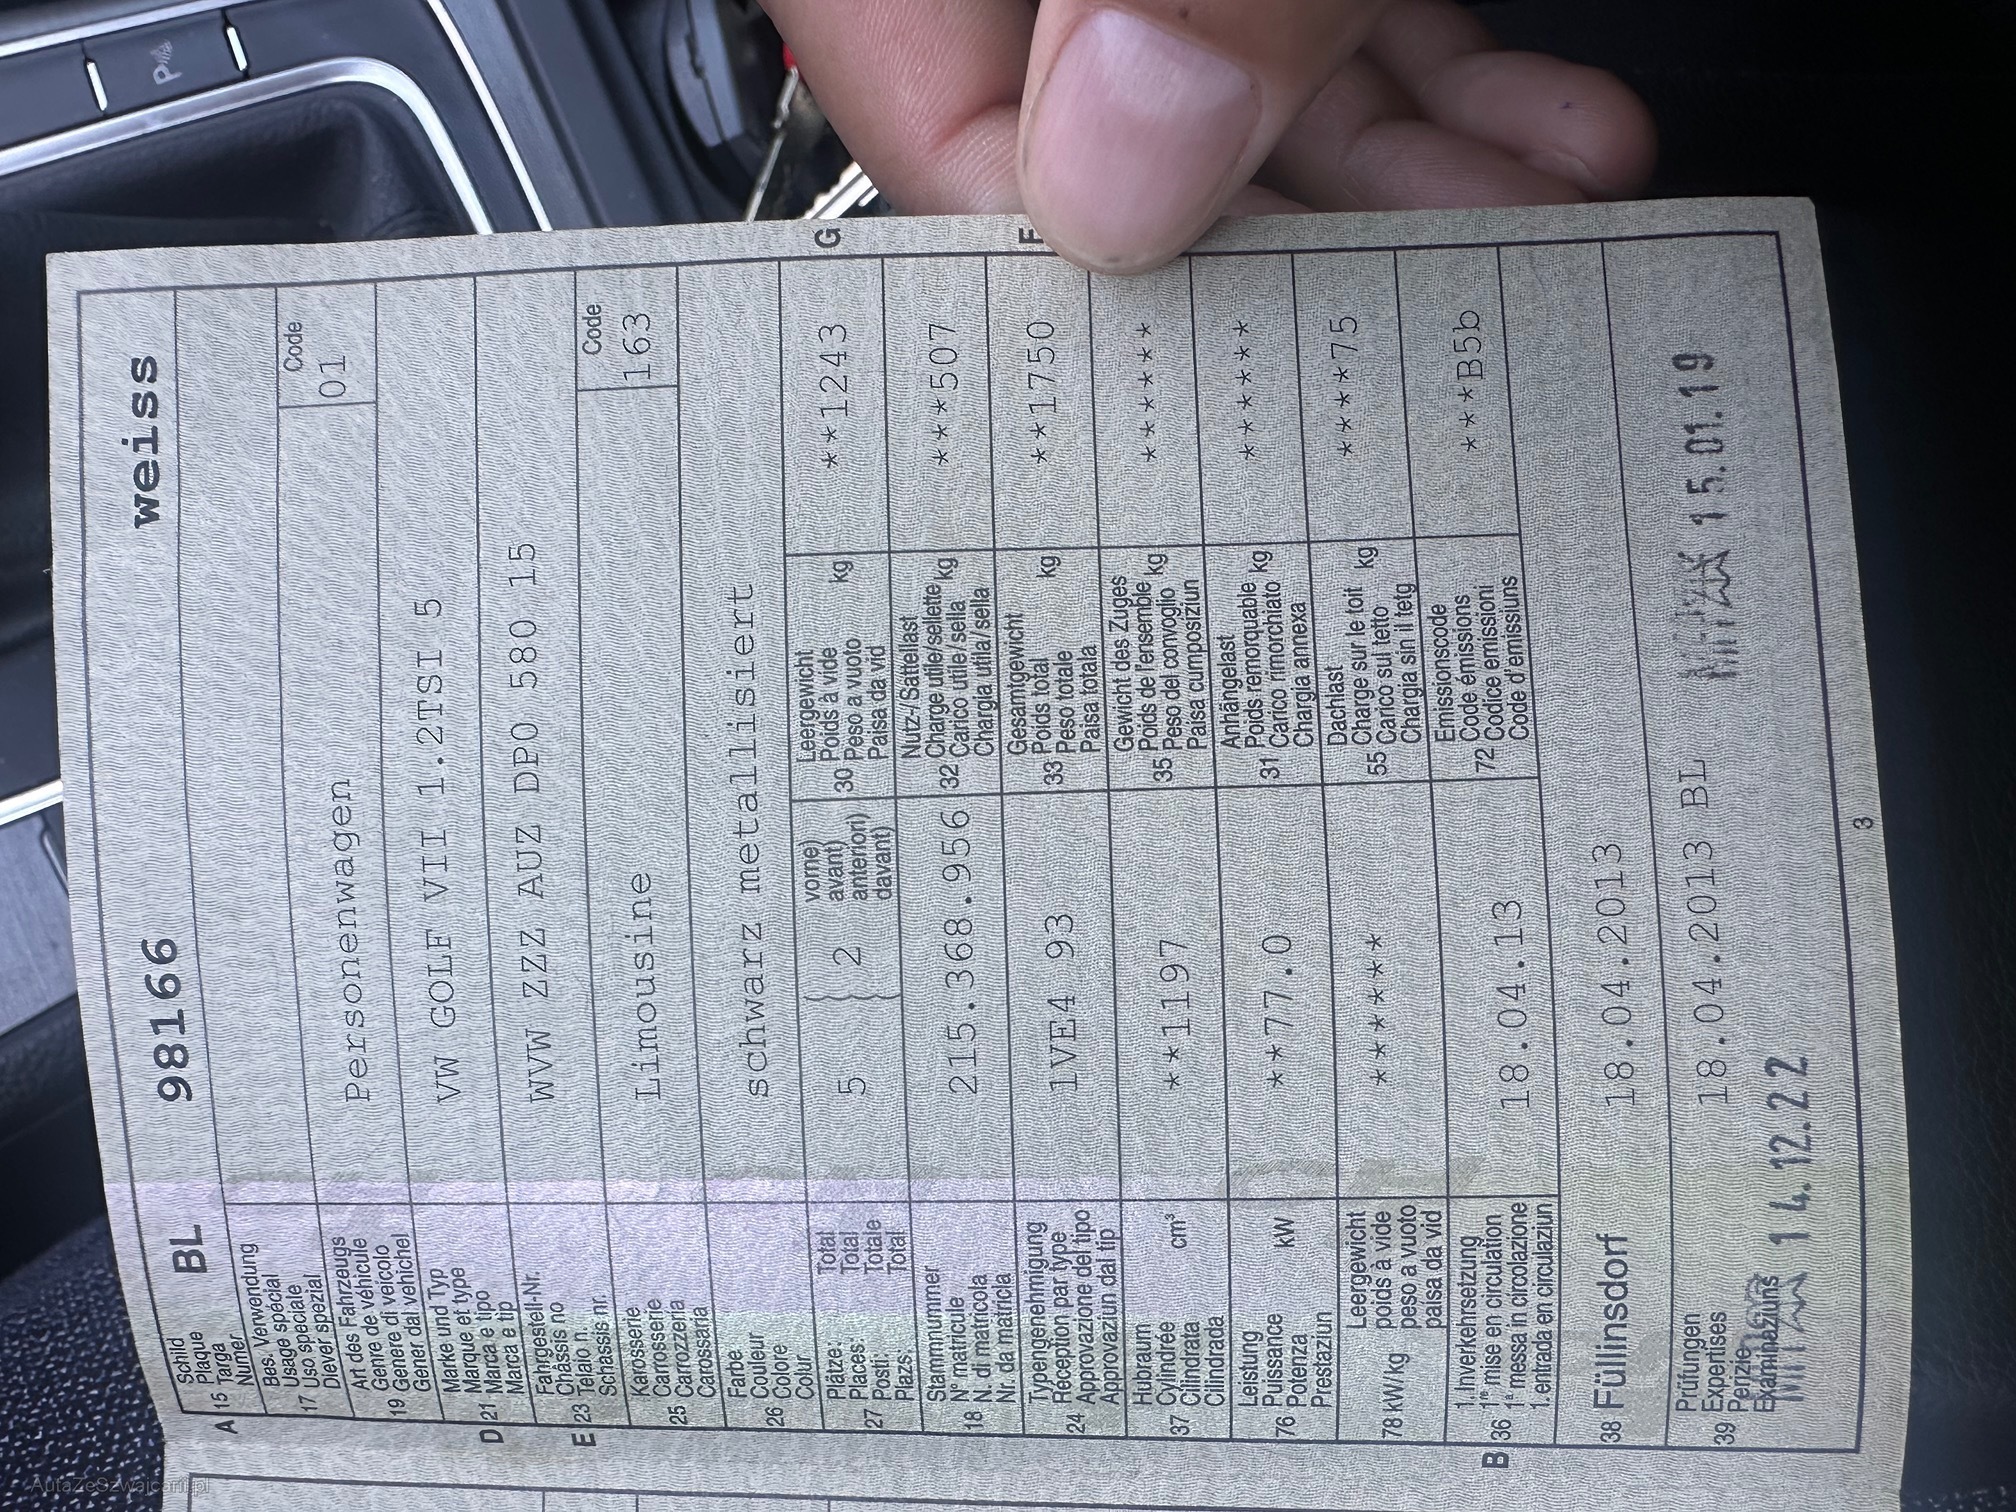 Schild
Plaque
A 15 Targa BL 98166 weiss
Numer
Bes. Verwendung
Usage spécial
17 Uso speciale
Diever spezial
Art des Fahrzeugs Code
Genre de véhicule Personenwagen 01
19 Genere di veicolo
Gener dal vehichel
Marke und Typ
Marque et type VW GOLF VII 1.2TSI 5
D 21 Marca e tipo
Marca e tip
Fahrgestell-Nr.
Châssis no WVW ZZZ AUZ DP0 580 15
E 23 Telaio n.
Schassis nr.
Karosserie Code
Carrosserie Limousine 163
25 Carrozzeria
Carossaria
Farbe
Couleur schwarz metallisiert
26 Colore
Colur
Plätze: Total vorne) Leergewicht
Places: Total 5 2 avant) Poids à vide **1243 G
27 Posti: Totale anteriori) 30 Peso a vuoto kg
Plazs: Total davant) Paisa da vid
Stammnummer Nutz-/Sattellast
N° matricule 215.368.956 Charge utile/sellette kg ***507
18 N. di matricola 32 Carico utile/sella
Nr. da matricla Chargia utila/sella
Typengenehmigung Gesamtgewicht
Réception par type 1VE4 93 Poids total kg **1750 F
24 Approvazione del tipo 33 Peso totale
Approvaziun dal tip Paisa totala
Hubraum Gewicht des Zuges
Cylindrée cm³ **1197 Poids de l'ensemble kg *******
37 Cilindrata 35 Peso del convoglio
Cilindrada Paisa cumposiziun
Leistung Anhängelast
Puissance kW **77.0 Poids remorquable kg *******
76 Potenza 31 Carico rimorchiato
Prestaziun Chargia annexa
Leergewicht Dachlast
poids à vide ******* Charge sur le toit kg *****75
78 kW/kg peso a vuoto 55 Carico sul tetto
paisa da vid Chargia sin il tetg
1.Inverkehrsetzung Emissionscode
1re mise en circulation 18.04.13 Code émissions ***B5b
B 36 1a messa in circolazione 72 Codice emissioni
1. entrada en circulaziun Code d'emissiuns
38 Füllinsdorf 18.04.2013
Prüfungen
Expertises 18.04.2013 BL 15.01.19
39 Perizie
Examinaziuns 14.12.22
3
AutaZeSzwajcarii.pl